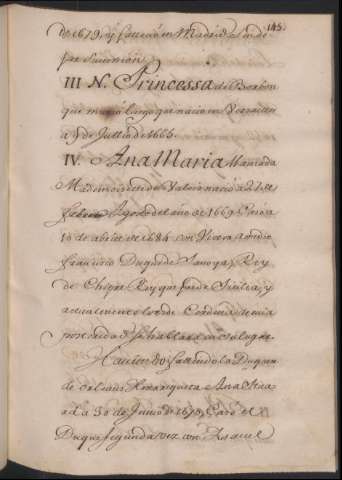 145.
de 1679, y falleció en Madrid sin de
jar sucesion
III N. Princessa de Borbon
que murió luego que nacio en Versalles
a 9 de Julio de 1665.
IV. Ana Maria llamada
Mademoiselle de Valois nació a 27 de
Agosto del año de 1669 Casó a
10 de abril de 1684 con Victor amadeo
francisco Duque de Saboya, y Rey
de Chipre Rey que fue de Sicilia, y
actualmente lo es de Cerdeña
posteridad se hablara en su lugar
Haviendo fallecido la Duquesa
de Orleans Henriqueta Ana Stua
ard a 30 de Junio de 1670, Casó el
Duque segunda vez con Isavel